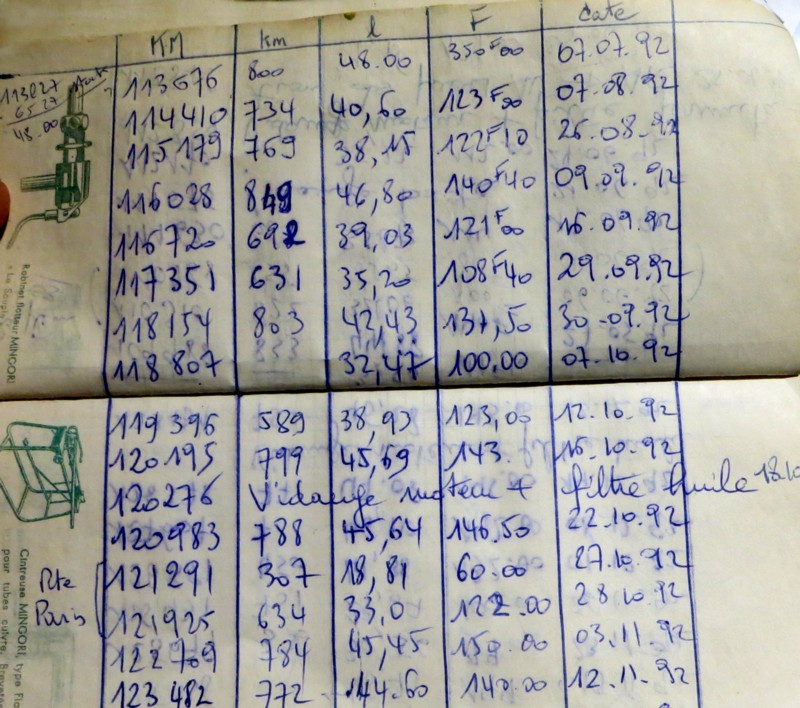 KM km l F date
113027
6527
48.00
113676 800 48.00 350F00 07.07.92
114410 734 40,60 123F00 07.08.92
115179 769 38,15 122F10 26.08.92
116028 849 46,80 140F40 09.09.92
116720 692 39,03 121F00 16.09.92
117351 631 35,20 108F40 29.09.92
118154 803 42,43 131,50 30.09.92
118807 32,47 100.00 07.10.92
Robinet flotteur MINGORI
119396 589 38,93 123,00 12.10.92
120195 799 45,69 143. 16.10.92
120276 Vidange moteur + filtre huile 18.10
120983 788 45,64 146.50 22.10.92
Pte Paris
121291 307 18,81 60.00 27.10.92
121925 634 33,0 122.00 28.10.92
122709 784 45,45 150.00 03.11.92
123482 772 44.60 140.00 12.11.92
Cintreuse MINGORI, type
pour tubes cuivre.